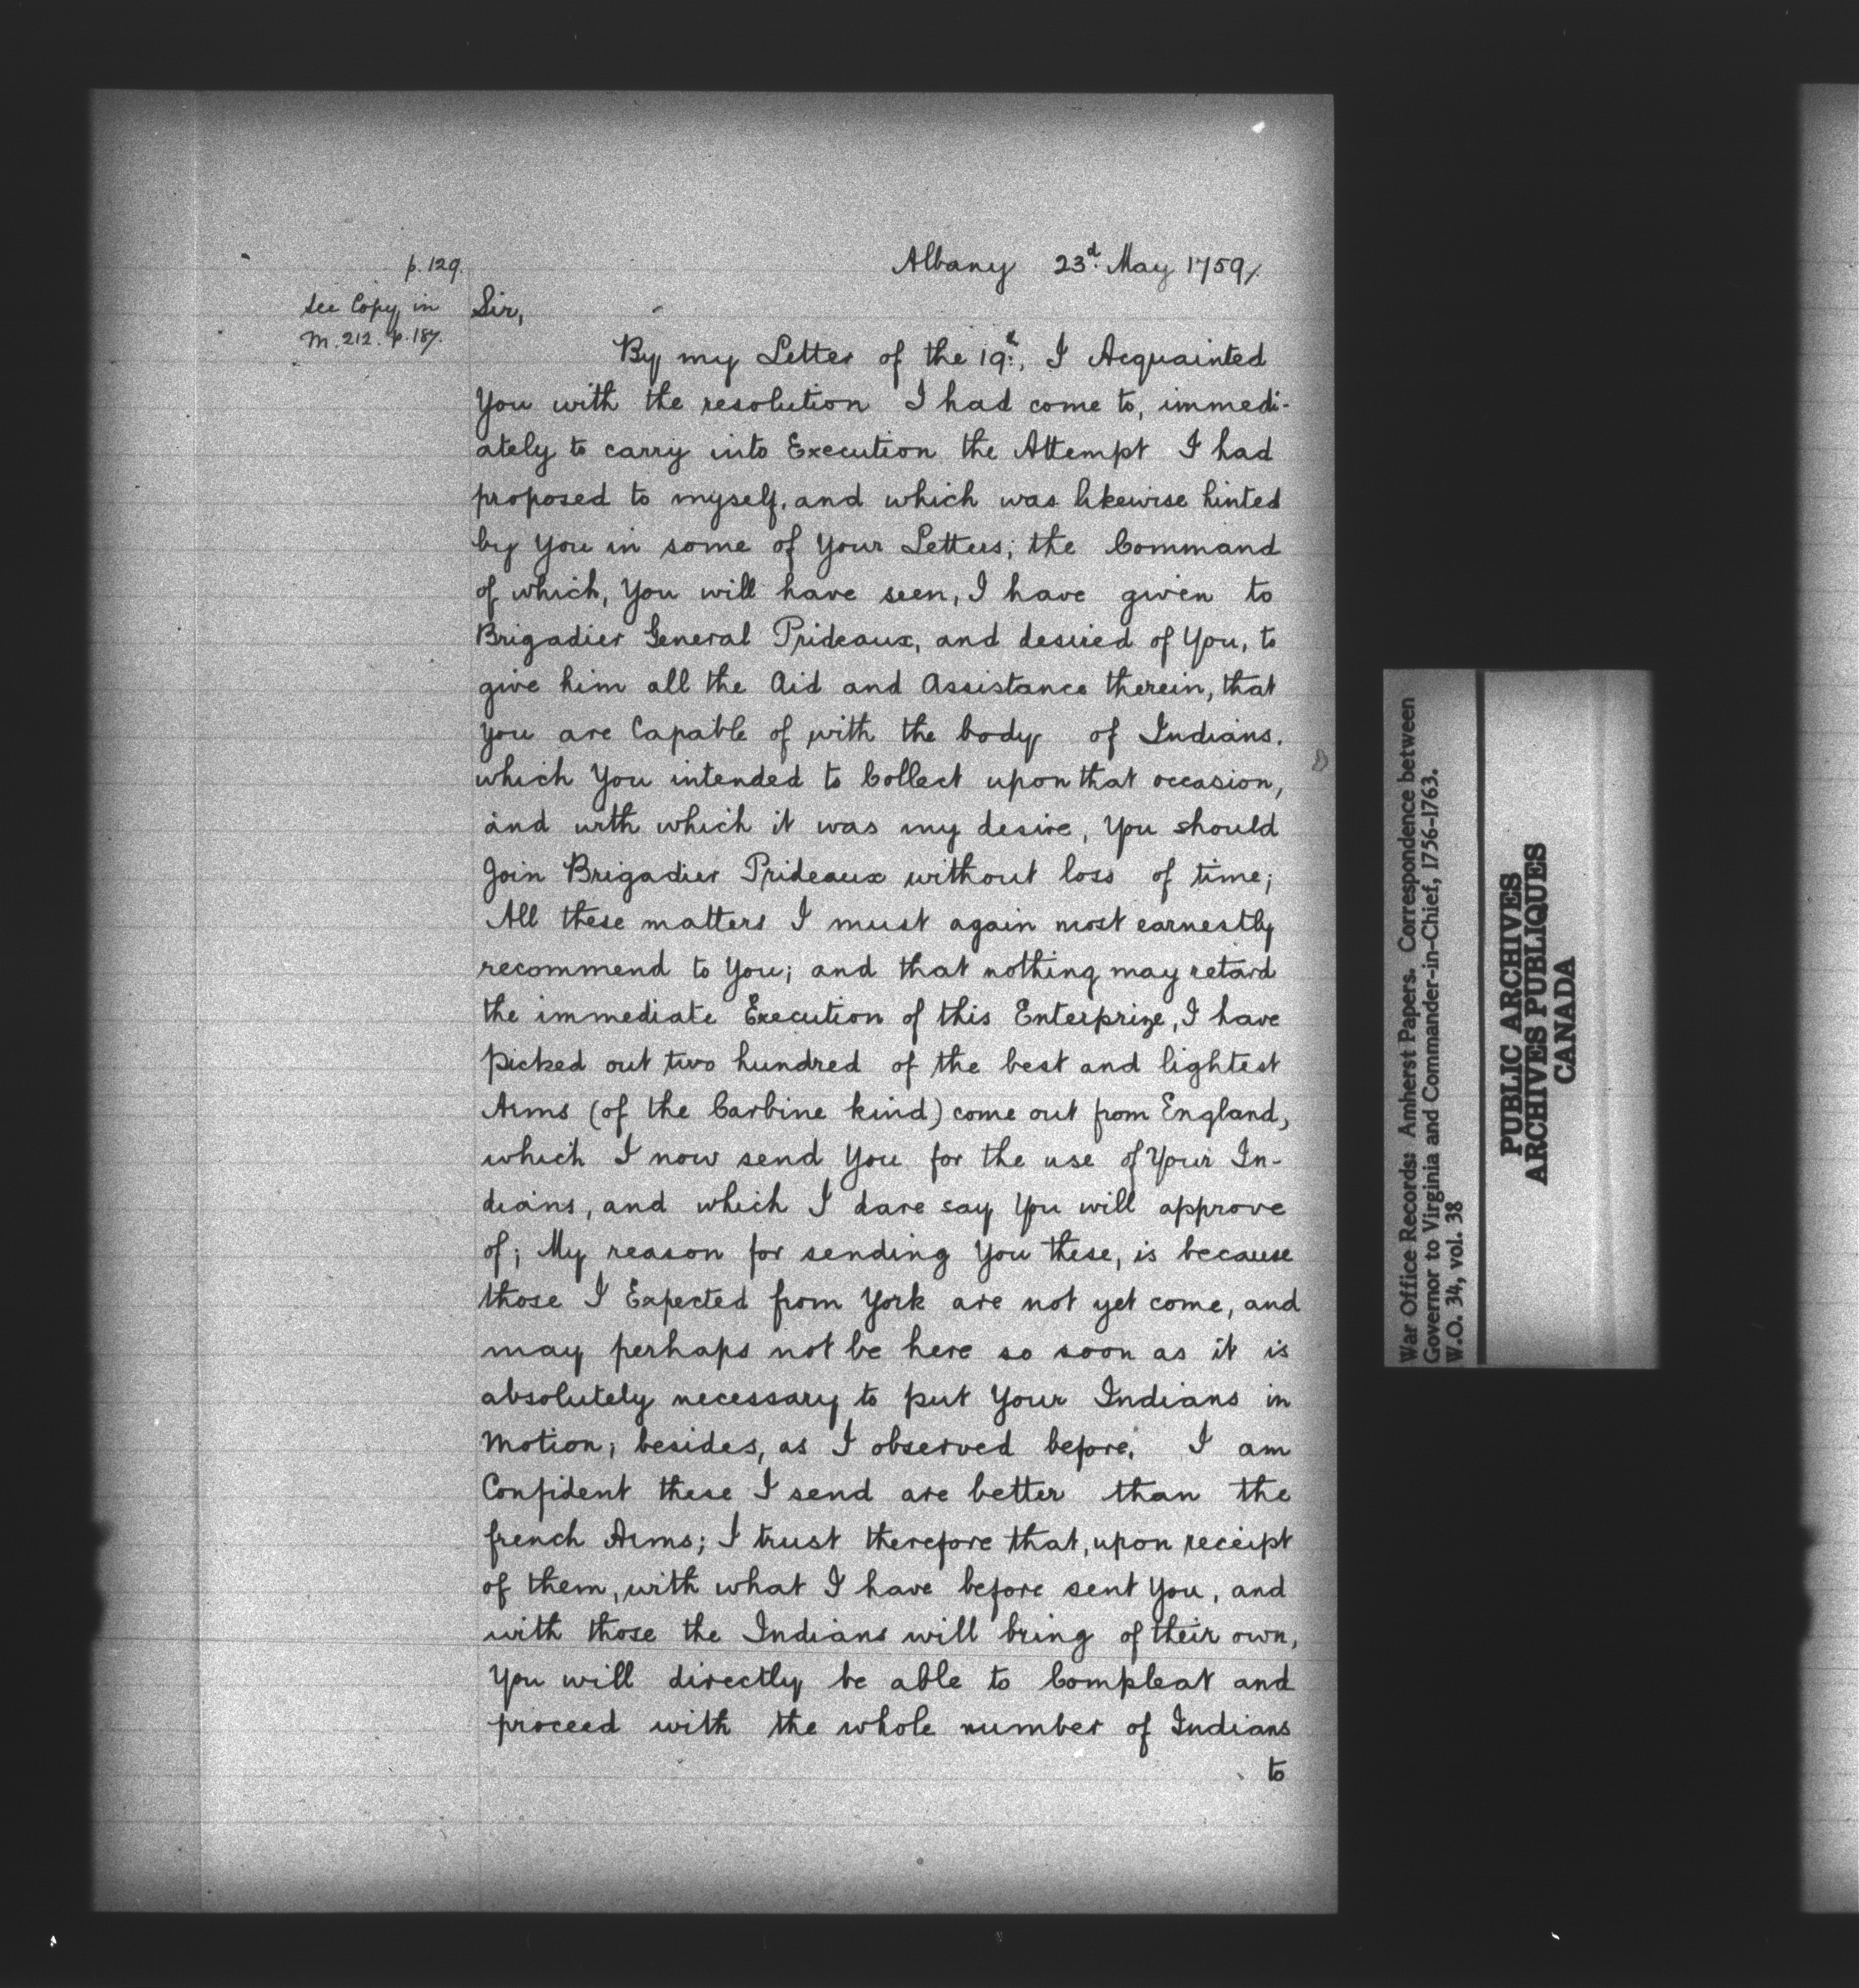 p. 129.
Albany 23d. May 1759/.
See Copy in
M. 212. p. 187.
Sir,
By my Letter of the 19t:, I Acquainted
You with the resolution I had come to, immedi-
ately to carry into Execution the Attempt I had
proposed to myself, and which was likewise hinted
by You in some of Your Letters; the Command
of which, You will have seen, I have given to
Brigadier General Prideaux, and desired of You, to
give him all the Aid and Assistance therein, that
you are Capable of with the body of Indians.
which You intended to Collect upon that occasion,
and with which it was my desire, You should
Join Brigadier Prideaux without loss of time;
All these matters I must again most earnestly
recommend to You; and that nothing may retard
the immediate Execution of this Enterprize, I have
picked out two hundred of the best and lightest
Arms (of the Carbine kind) come out from England,
which I now send You for the use of Your In-
dians, and which I dare say You will approve
of; My reason for sending You these, is because
those I Expected from York are not yet come, and
may perhaps not be here so soon as it is
absolutely necessary to put Your Indians in
Motion; besides, as I observed before, I am
Confident these I send are better than the
french Arms; I trust therefore that, upon receipt
of them, with what I have before sent You, and
with those the Indians will bring of their own,
You will directly be able to Compleat and
proceed with the whole number of Indians
to
War Office Records: Amherst Papers. Correspondence between
Governor to Virginia and Commander-in-Chief, 1756-1763.
W.O. 34, vol. 38
PUBLIC ARCHIVES
ARCHIVES PUBLIQUES
CANADA